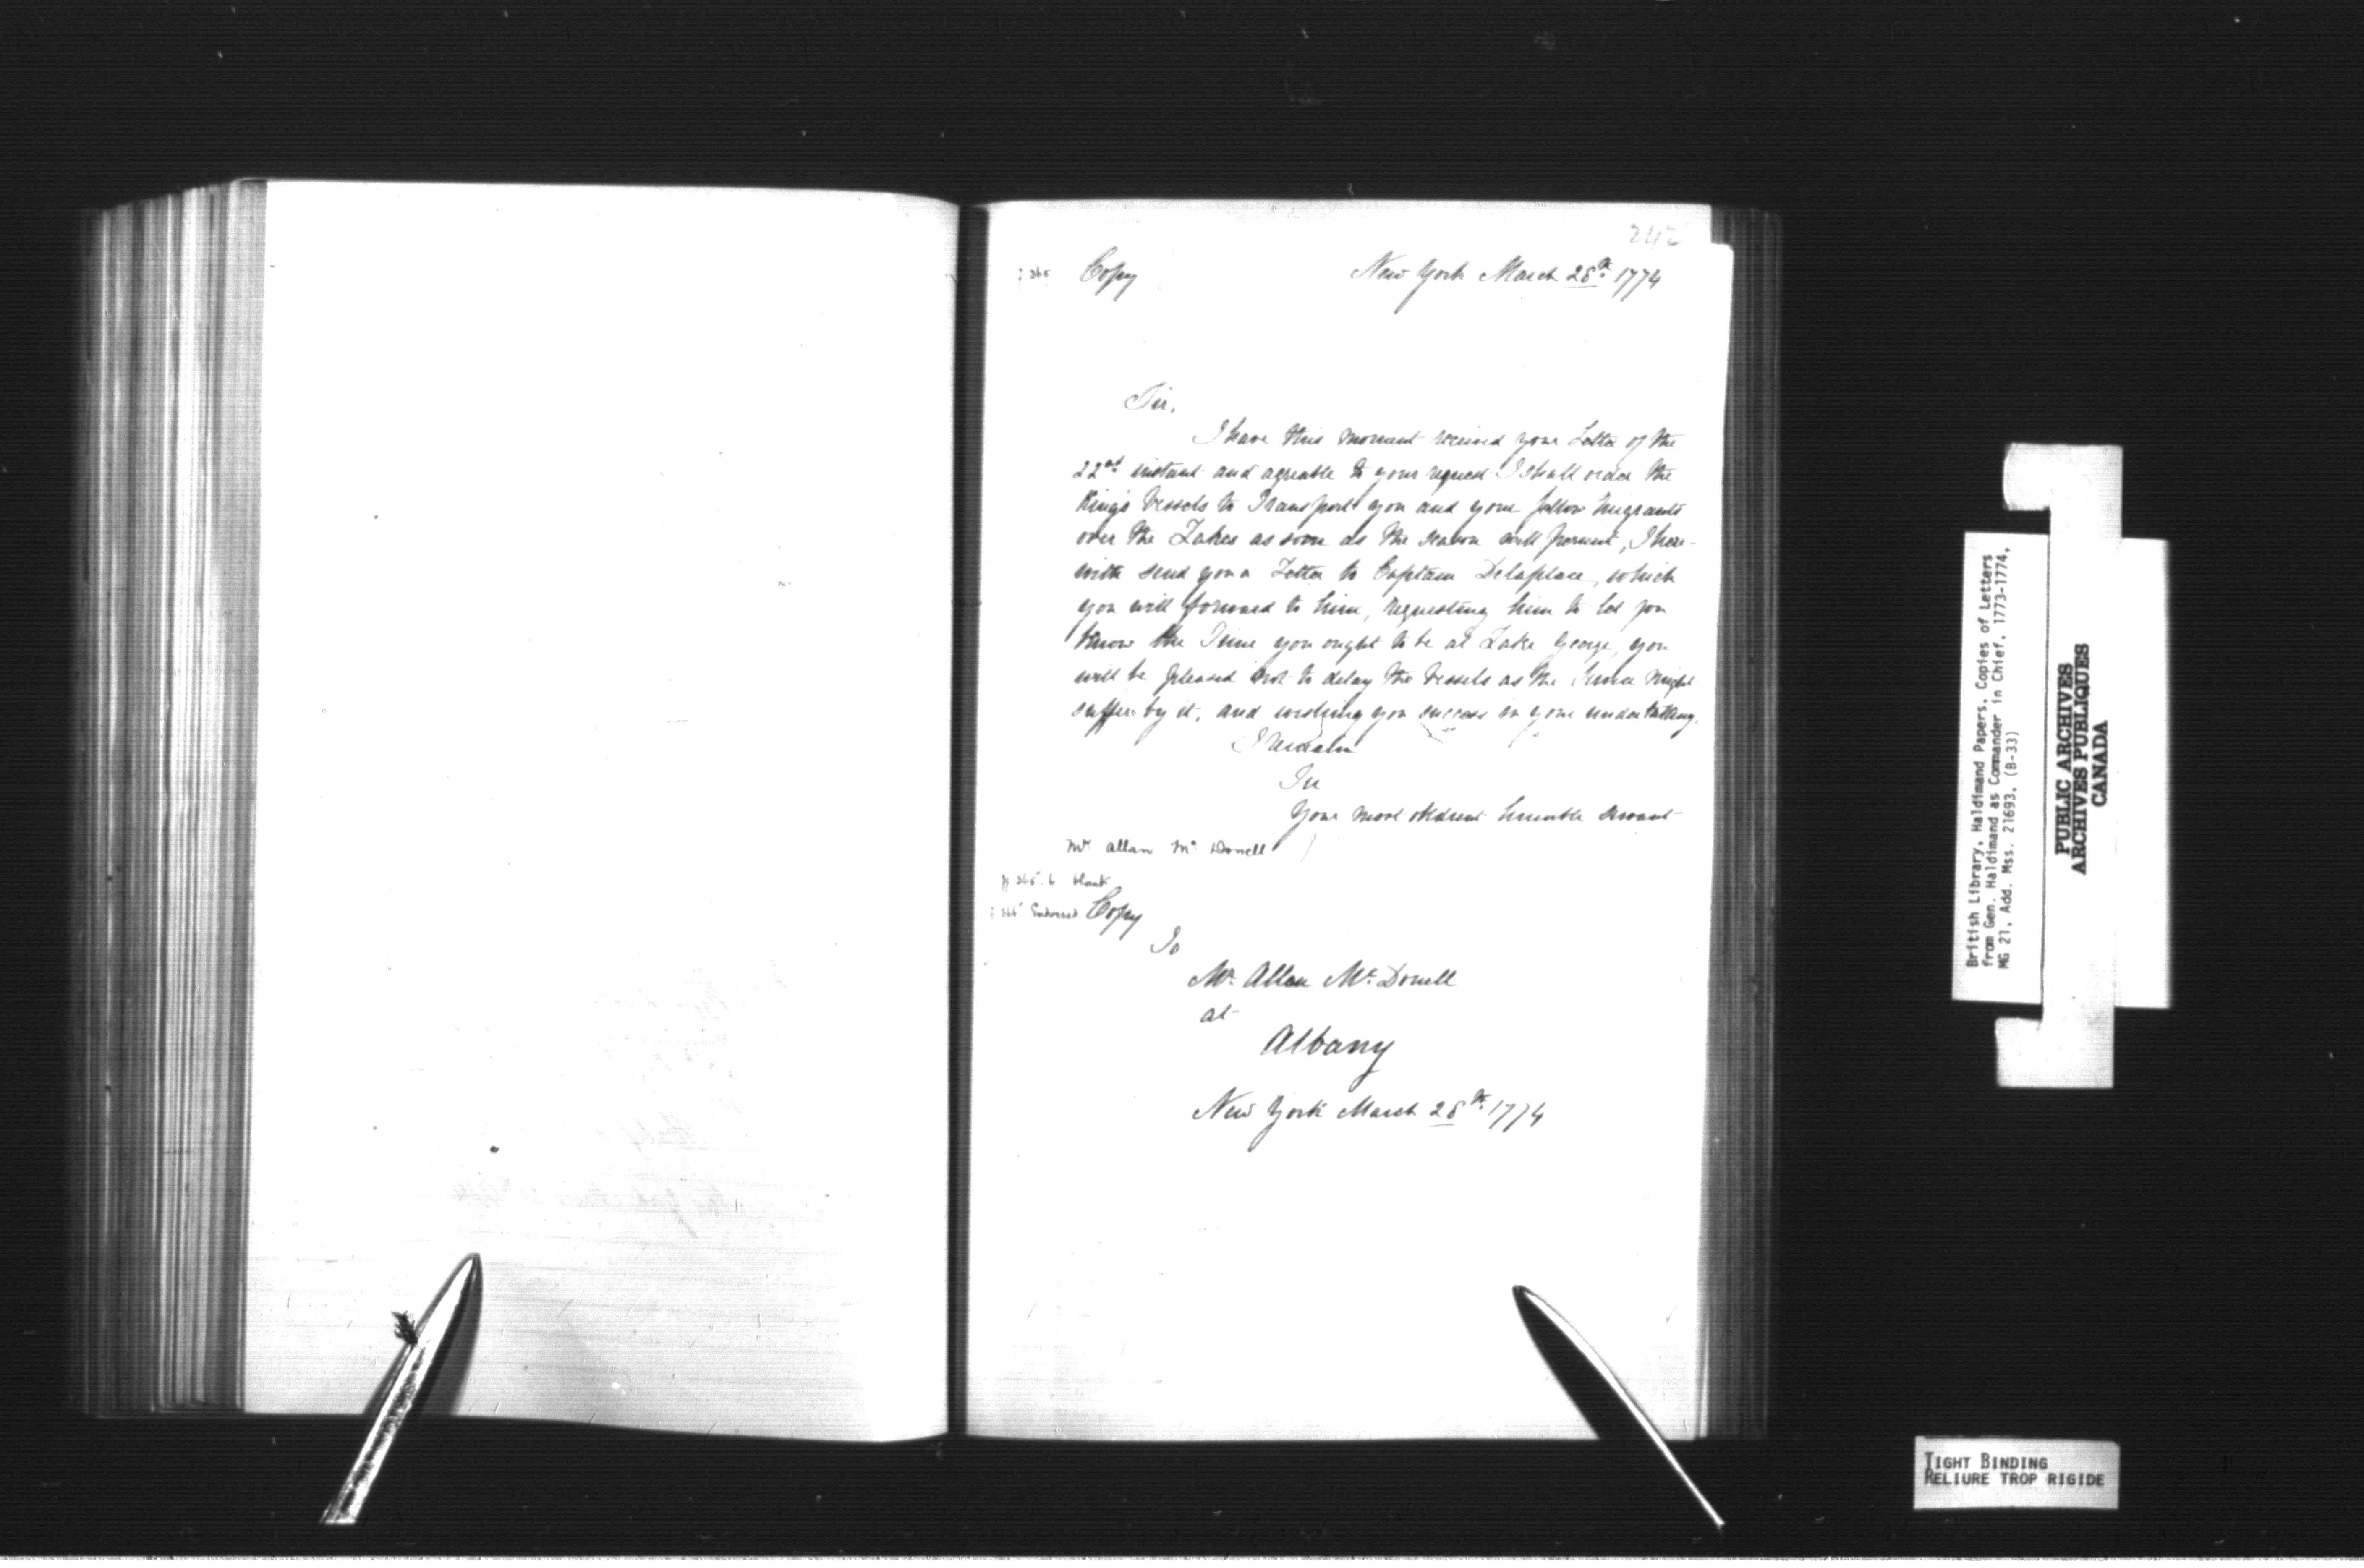 242
Copy New York March 28th 1774
Sir,
I have this moment received your Letter of the
22nd instant and agreable to your request I shall order the
King's Vessels to Transport you and your fellow Emigrants
over the Lakes as soon as the season will permit, I here-
with send you a Letter to Captain Delaplace, which
you will forward to him, requesting him to let you
know the Time you ought to be at Lake George, you
will be pleased not to delay the Vessels as the Service might
suffer by it, and wishing you success in your undertaking,
I remain
Sir
Your most obedient humble servant
Mr Allan Mc Donell
p 365. b blank
Endorsed Copy
To
Mr. Allan Mc. Donell
at
Albany
New York March 28th. 1774
British Library, Haldimand Papers, Copies of Letters
from Gen. Haldimand as Commander in Chief, 1773-1774,
MG 21, Add. Mss. 21693, (B-33)
PUBLIC ARCHIVES
ARCHIVES PUBLIQUES
CANADA
TIGHT BINDING
RELIURE TROP RIGIDE